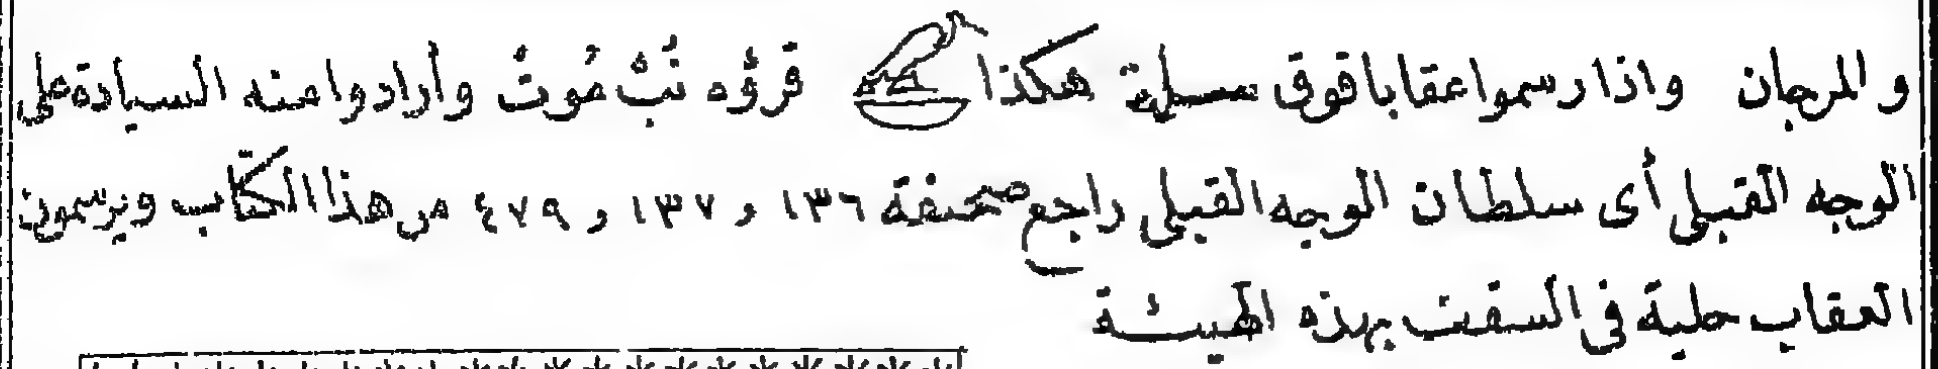 والمرجان واذا رسموا عقابا فوق سلة هكذا قرؤه نُبْ مُوتْ وأرادوا منه السيادة على
الوجه القبلى أى سلطان الوجه القبلى راجع صحيفة ١٣٦ و ١٣٧ و ٤٧٩ من هذا الكتاب ويرسمون
العقاب حلية فى السقف بهذه الهيئة